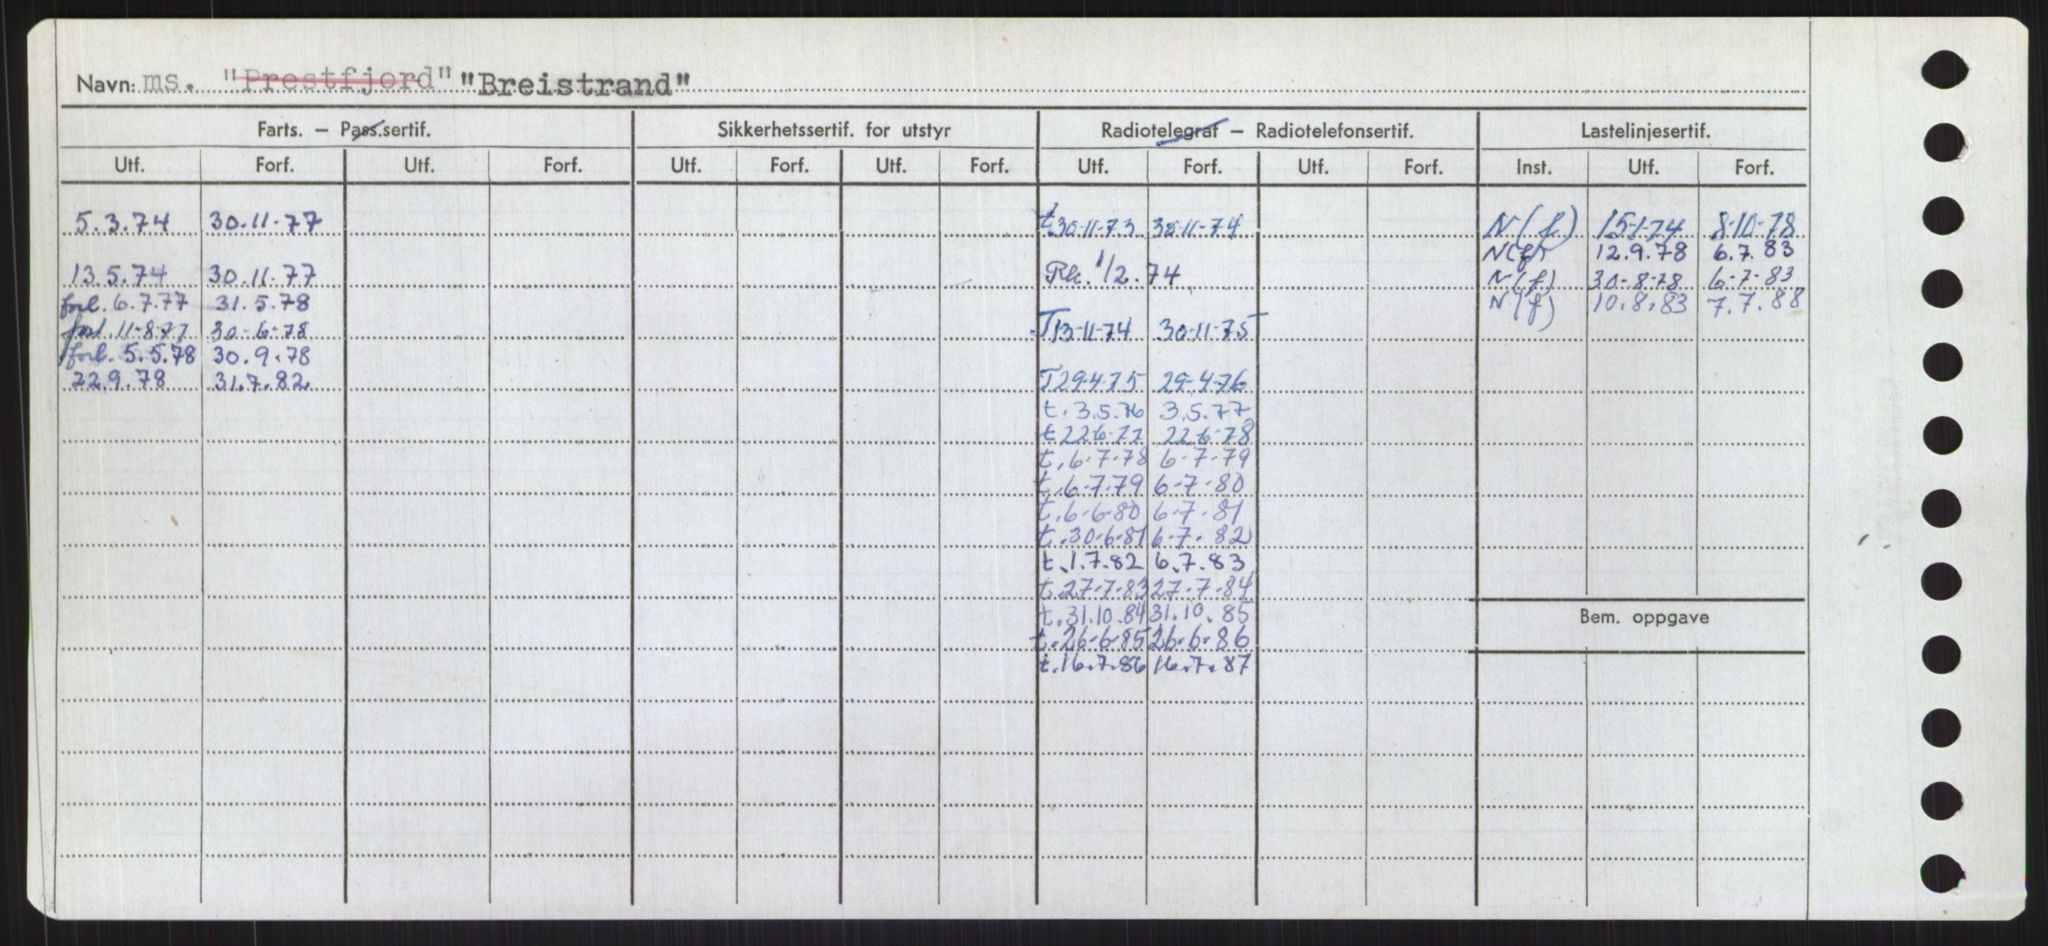 Navn: ms. "Prestfjord" "Breistrand"
Farts. – Pass.sertif. Sikkerhetssertif. for utstyr Radiotelegraf – Radiotelefonsertif. Lastelinjesertif.
Utf. Forf. Utf. Forf. Utf. Forf. Utf. Forf. Utf. Forf. Utf. Forf. Inst. Utf. Forf.
5.3.74 30.11.77
13.5.74 30.11.77
forl. 6.7.77 31.5.78
forl. 11-8.77 30-6-78
forl. 5.5.78 30.9.78
22.9.78 31.7.82
t 30-11-73 30-11-74
Rk. 1/2.74
T 13-11-74 30-11-75
T 29-4-75 29-4-76
t. 3.5.76 3.5.77
t 22.6-77 22.6-78
t. 6-7-78 6-7-79
t. 6-7.79 6-7-80
t. 6-6-80 6-7-81
t. 30-6-81 6-7-82
t. 1.7.82 6.7.83
t. 27-7-83 27-7-84
t. 31.10.84 31.10.85
t. 26-6-85 26-6-86
t. 16.7.86 16.7.87
N(f) 15-1-74 8-10-78
N(f) 12.9.78 6.7.83
N(f) 30-8-78 6-7-83
N(f) 10.8.83 7.7.88
Bem. oppgave